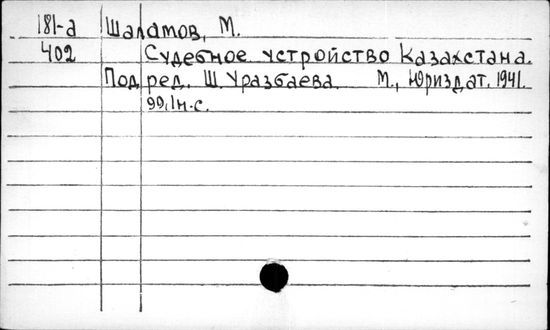 181-а Шаламов, М.
402 Судебное устройство Казахстана.
Под ред. Ш. Уразбаева. М., Юриздат. 1941.
99,1н.с.